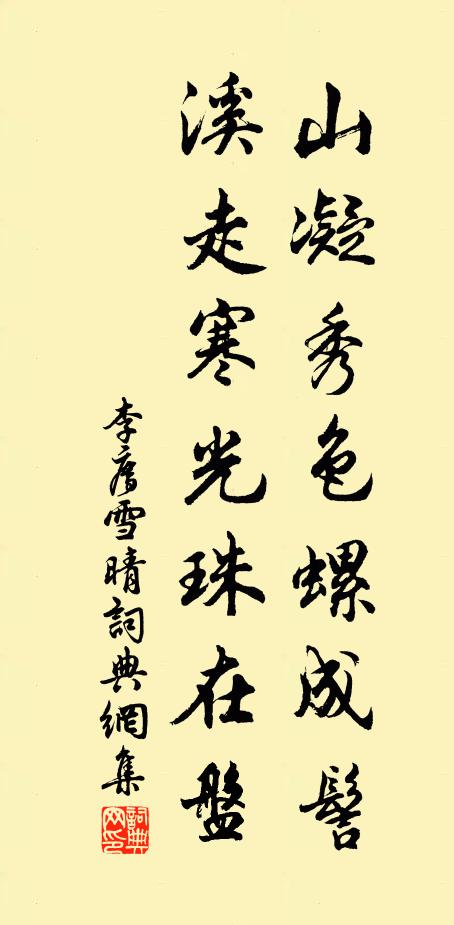 山凝秀色螺成髻
溪走寒光珠在盤
李廌雪晴詞典網集
詞典网印